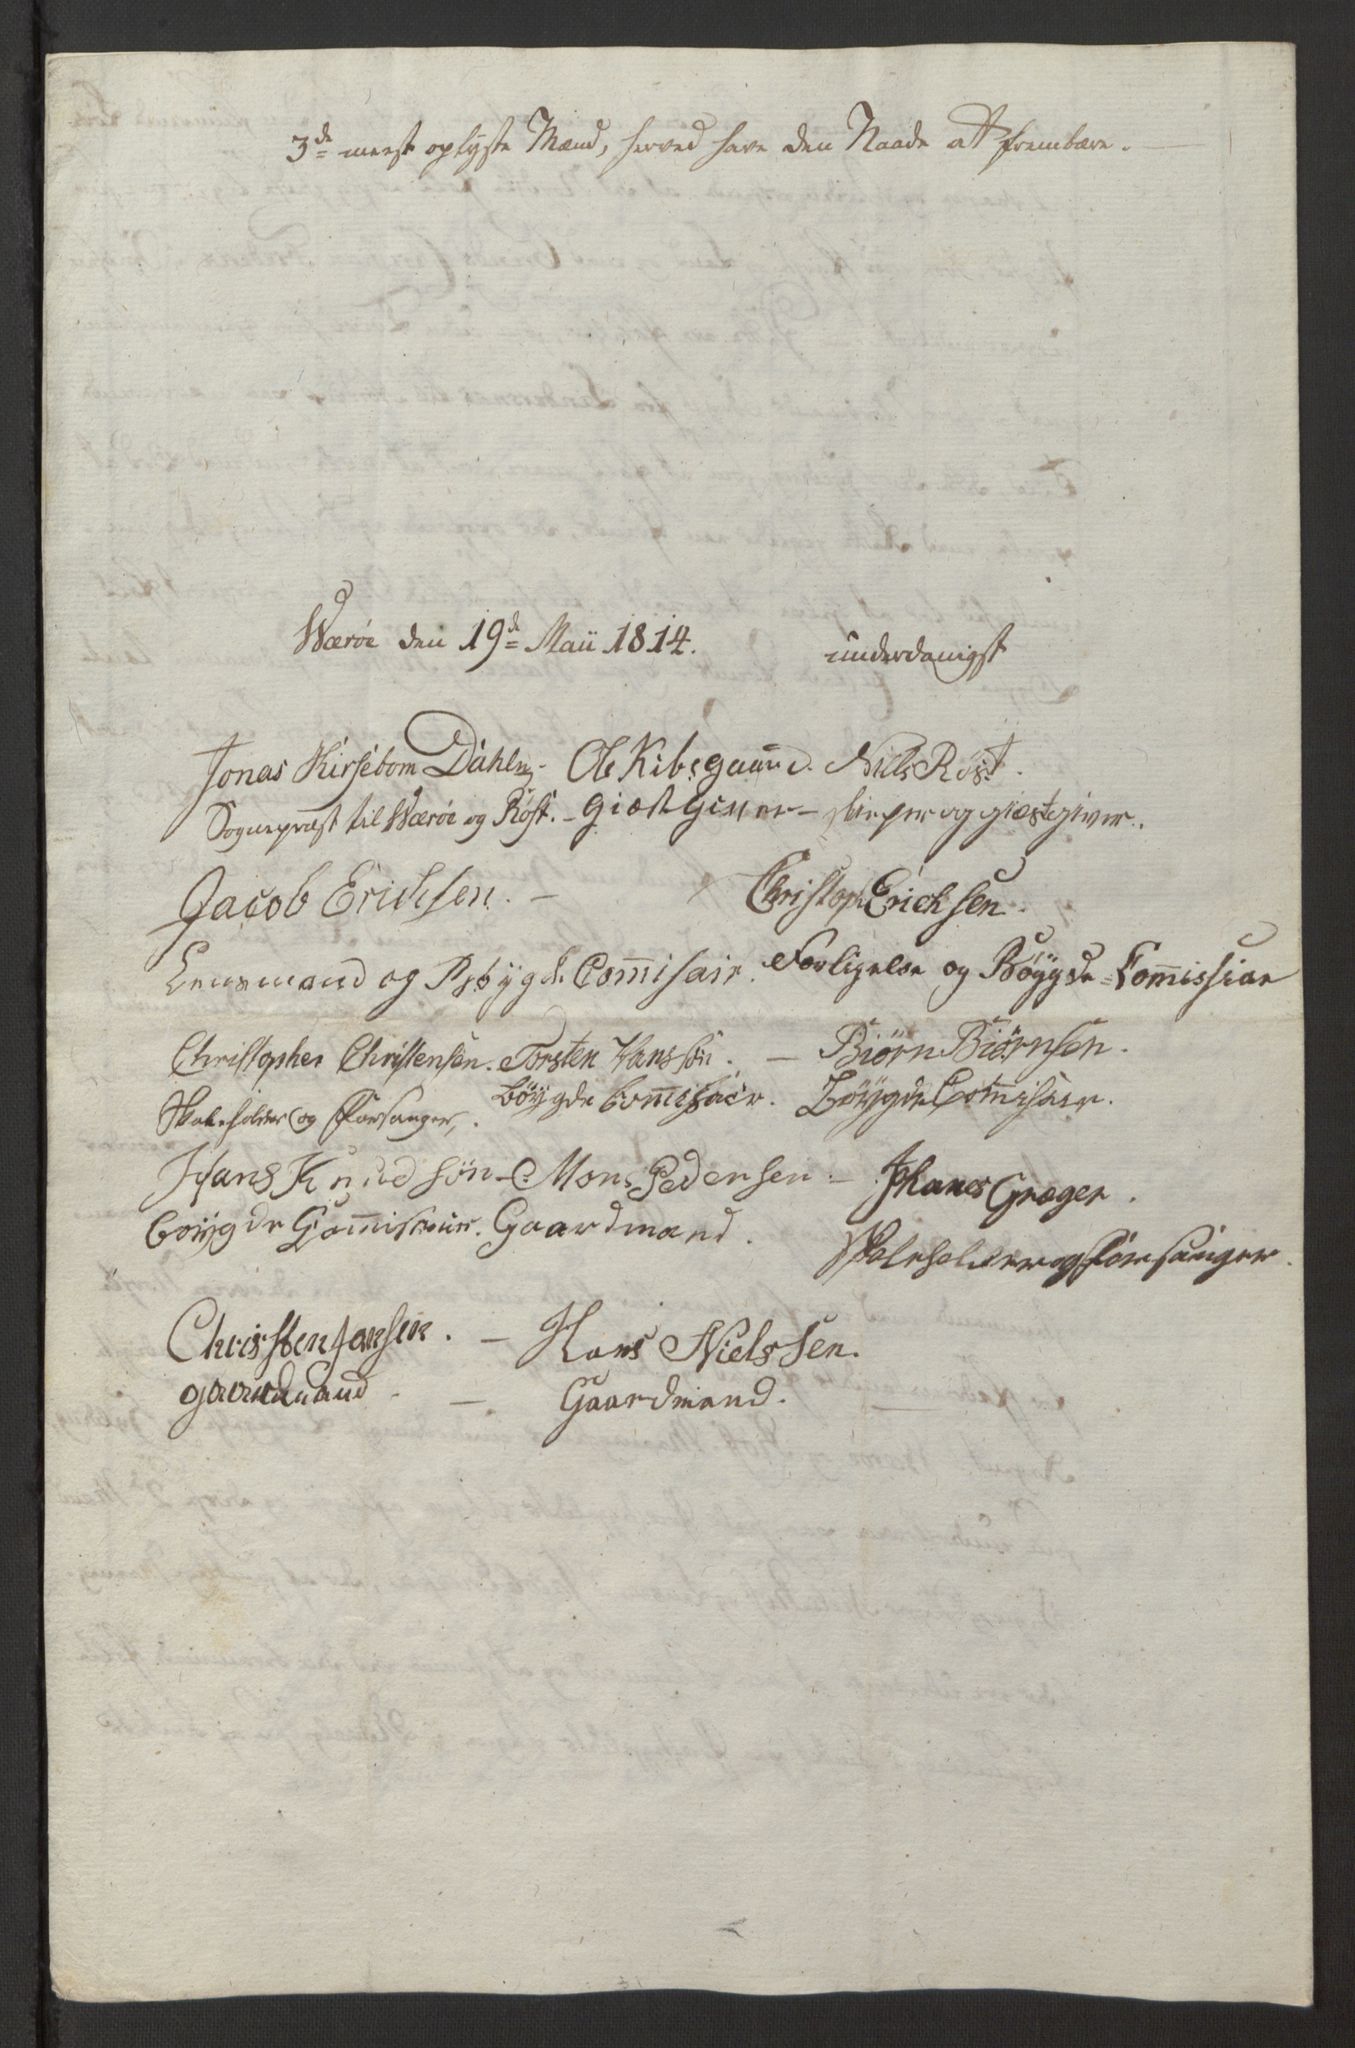 3de meest oplyste Mænd, herved have den Naade at frembære.
Værøe den 19de Maii 1814. underdanigst
Jonas Kirsebom Dahl, - Ole Kibsgaard. Niels Röst.
Sognepræst til Værøe og Röst. - Giæstgiver - skieper og giæstgiver.
Jacob Ericksen. - Christoph Ericksen.
Lensmand og Bøygde Com̄isair. Forligelse og Böÿgde-Com̄issiar
Christopher Christensen. Torsten Hanssön. - Biørn Biørnsen.
Skoleholder og Forsanger, Böygde Com̄isair. Böygde Com̄isair.
Hans Knudsön - Mons Pedersen - Johanes Græger.
böygde Com̄isair. Gaardmand.
Skoleholder og Forsanger.
Christen Jansen. - Hans Nielssen.
gaardmand - Gaardmand.